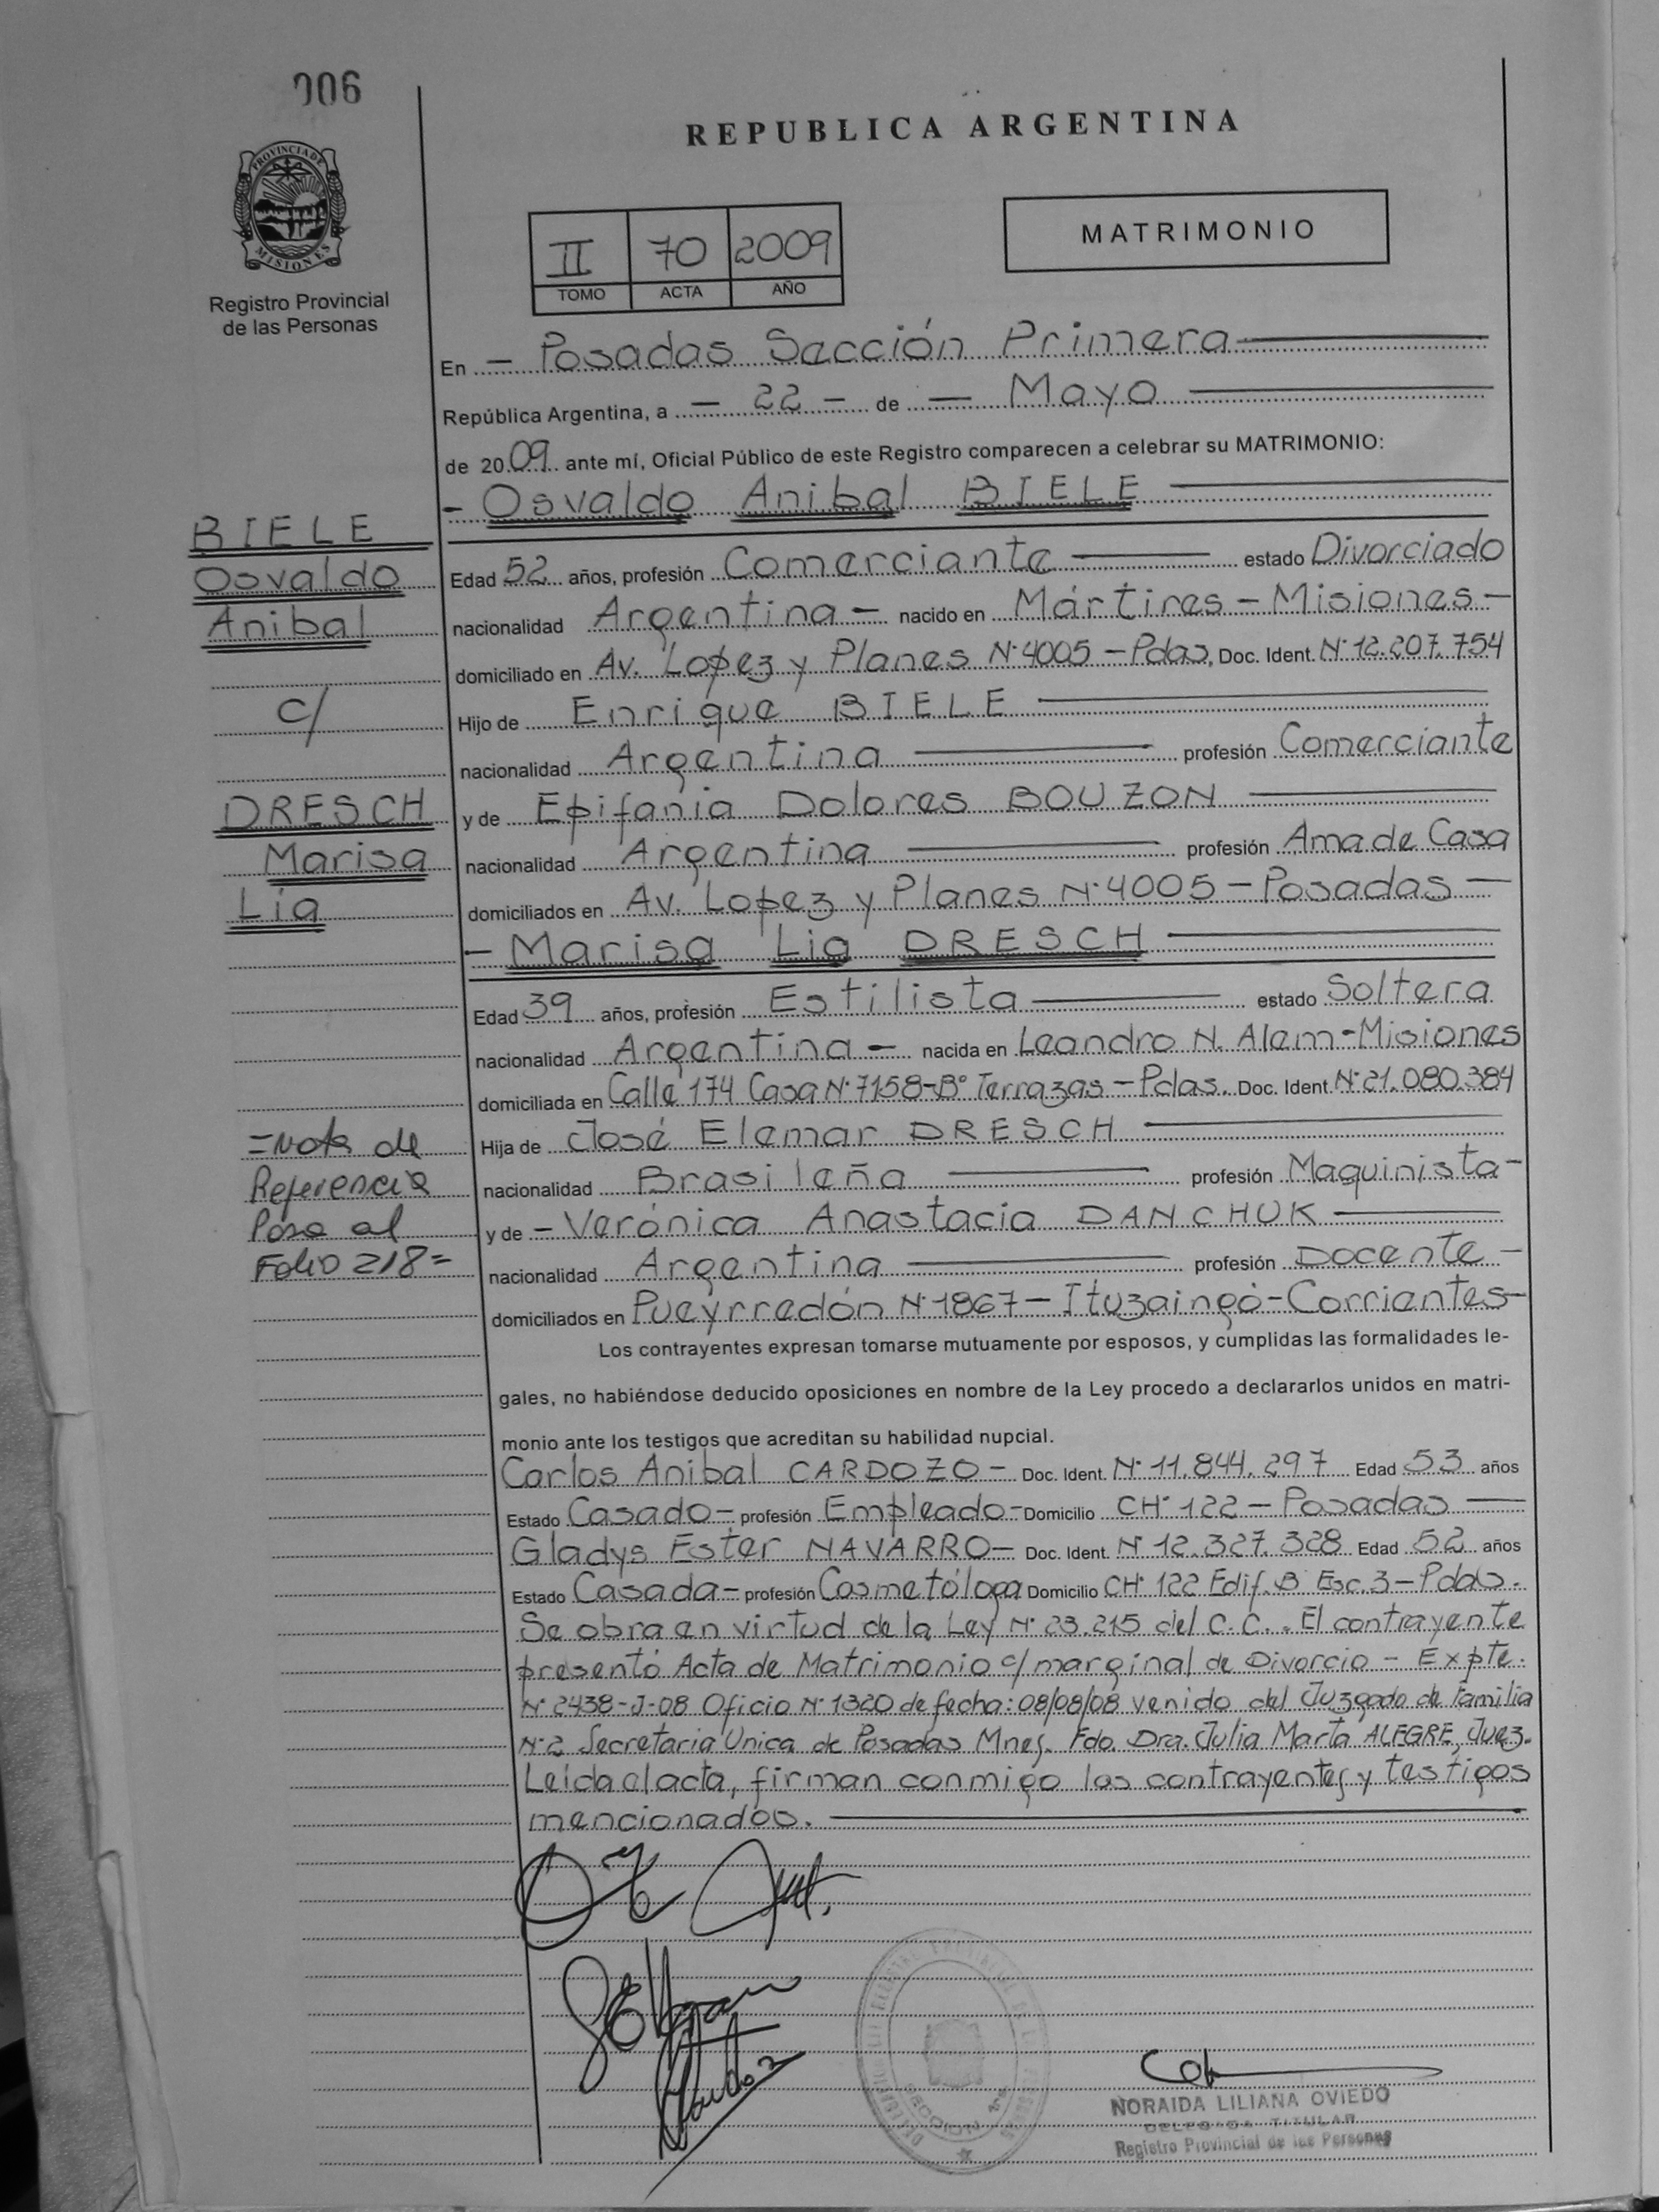 006
REPUBLICA ARGENTINA
PROVINCIA DE MISIONES
Registro Provincial
de las Personas
II 70 2009
TOMO ACTA AÑO
MATRIMONIO
En - Posadas Sección Primera
República Argentina, a - 22 - de - Mayo
de 2009 ante mí, Oficial Público de este Registro comparecen a celebrar su MATRIMONIO:
- Osvaldo Anibal BIELE
BIELE
Osvaldo
Anibal
c/
DRESCH
Marisa
Lia
=Nota de
Referencia
Pasa al
Folio 218=
Edad 52 años, profesión Comerciante estado Divorciado
nacionalidad Argentina - nacido en Mártires - Misiones -
domiciliado en Av. Lopez y Planes N° 4005 - Pdas, Doc. Ident. N° 12.207.754
Hijo de Enrique BIELE
nacionalidad Argentina profesión Comerciante
y de Epifania Dolores BOUZON
nacionalidad Argentina profesión Ama de Casa
domiciliados en Av. Lopez y Planes N° 4005 - Posadas -
- Marisa Lia DRESCH
Edad 39 años, profesión Estilista estado Soltera
nacionalidad Argentina - nacida en Leandro N. Alem - Misiones
domiciliada en Calle 174 Casa N° 7158 - B° Terrazas - Pdas. Doc. Ident. N° 21.080.384
Hija de José Elemar DRESCH
nacionalidad Brasileña profesión Maquinista -
y de - Verónica Anastacia DANCHUK
nacionalidad Argentina profesión Docente -
domiciliados en Pueyrredón N° 1867 - Ituzaingó - Corrientes -
Los contrayentes expresan tomarse mutuamente por esposos, y cumplidas las formalidades le-
gales, no habiéndose deducido oposiciones en nombre de la Ley procedo a declararlos unidos en matri-
monio ante los testigos que acreditan su habilidad nupcial.
Carlos Anibal CARDOZO - Doc. Ident. N° 11.844.297 Edad 53 años
Estado Casado - profesión Empleado - Domicilio CH° 122 - Posadas
Gladys Ester NAVARRO - Doc. Ident. N° 12.327.328 Edad 52 años
Estado Casada - profesión Cosmetóloga Domicilio CH° 122 Edif. B Esc. 3 - Pdas.
Se obra en virtud de la Ley N° 23.215 del C.C.. El contrayente
presentó Acta de Matrimonio c/ marginal de Divorcio - Expte.
N° 2438-J-08 Oficio N° 1320 de fecha: 08/08/08 venido del Juzgado de Familia
N° 2 Secretaria Unica de Posadas Mnes. Fdo. Dra. Julia Marta ALEGRE, Juez.
Leida el acta, firman conmigo los contrayentes y testigos
mencionados.
NORAIDA LILIANA OVIEDO
DELEGADA TITULAR
Registro Provincial de las Personas